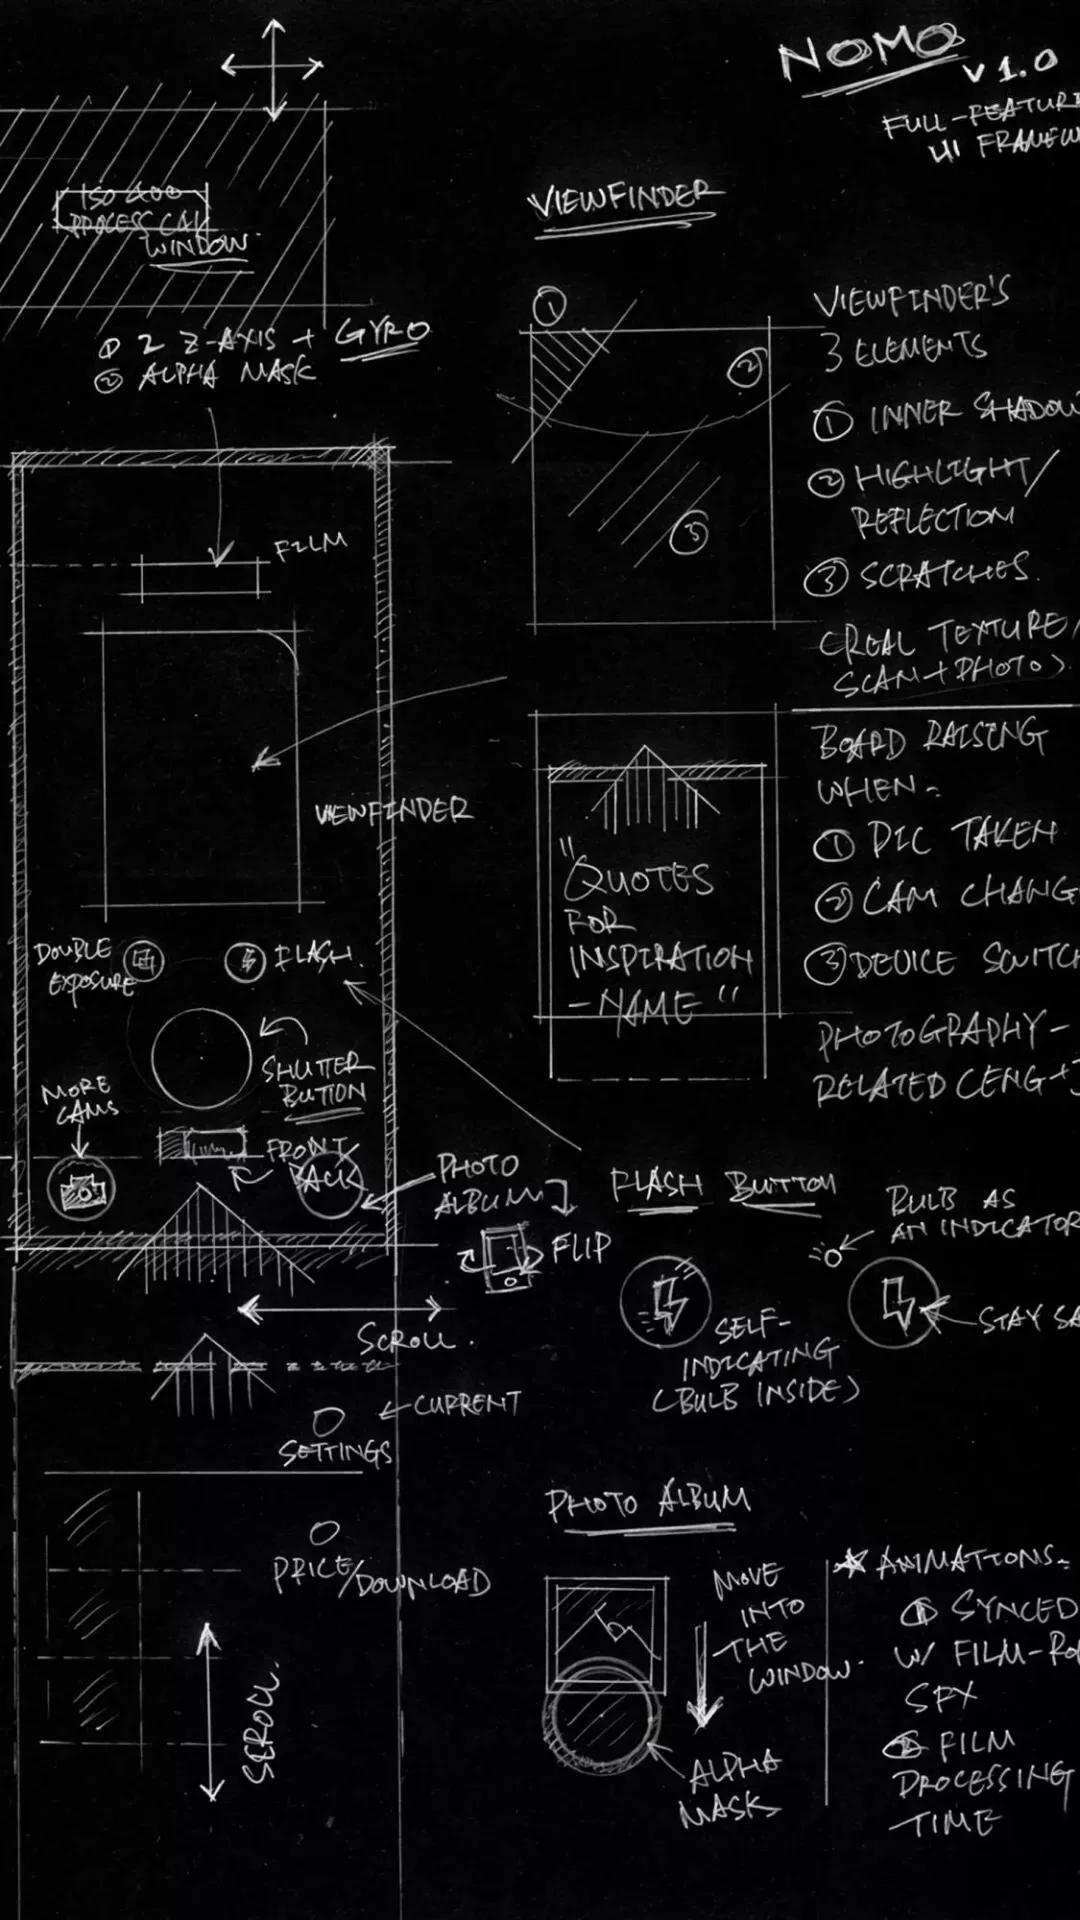 NOMO
V 1.0
FULL-FEATURE
UI FRAMEW
ISO 400
PROCESS
WINDOW
① 2 Z-AXIS + GYRO
② ALPHA MASK
FILM
VIEWFINDER
DOUBLE
EXPOSURE
FLASH
SHUTTER
BUTTON
MORE
CAMS
FRONT/
BACK
PHOTO
ALBUM
FLIP
SCROLL
CURRENT
SETTINGS
PRICE/DOWNLOAD
SCROLL
VIEWFINDER
①
②
③
VIEWFINDER'S
3 ELEMENTS
① INNER SHADOW
② HIGHLIGHT/
REFLECTION
③ SCRATCHES
(REAL TEXTURE/
SCAN+PHOTO)
"QUOTES
FOR
INSPIRATION
-NAME"
BOARD RAISING
WHEN
① PIC TAKEN
② CAM CHANG
③ DEVICE SWITCH
PHOTOGRAPHY-
RELATED (ENG+
FLASH BUTTON
SELF-
INDICATING
(BULB INSIDE)
BULB AS
AN INDICATOR
STAY SA
PHOTO ALBUM
MOVE
INTO
THE
WINDOW.
ALPHA
MASK
★ ANIMATIONS
① SYNCED
W/ FILM-RO
SFX
② FILM
PROCESSING
TIME